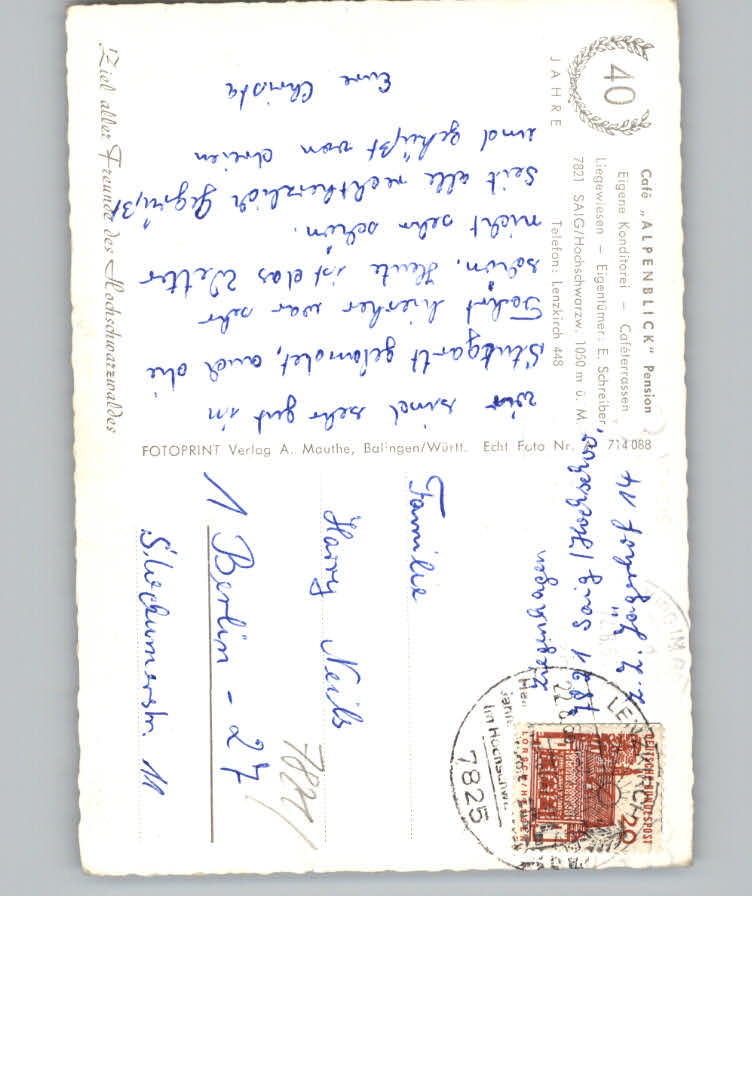 40
JAHRE
Café „ALPENBLICK" Pension
Eigene Konditorei – Caféterrassen
Liegewiesen – Eigentümer: E. Schreiber
7821 SAIG/Hochschwarzw. 1050 m ü. M.
Telefon: Lenzkirch 448
Ziel aller Freunde des Hochschwarzwaldes
wir sind sehr gut in
Stuttgart gelandet, auch die
Fahrt hierher war sehr
schön. Heute ist das Wetter
nicht sehr schön.
Seit alle recht herzlich gegrüßt
und geküßt von
Eure Christa
FOTOPRINT Verlag A. Mauthe, Balingen/Württ. Echt Foto Nr. 714 088
z. Z. Jägerhof 14
7821 Saig/Hochschw.
DEUTSCHE BUNDESPOST
20
LORSCH/HESSEN
LENZKIRCH
im Hochschw.
7825
Familie
Harry
1 Berlin - 27
11
7821/